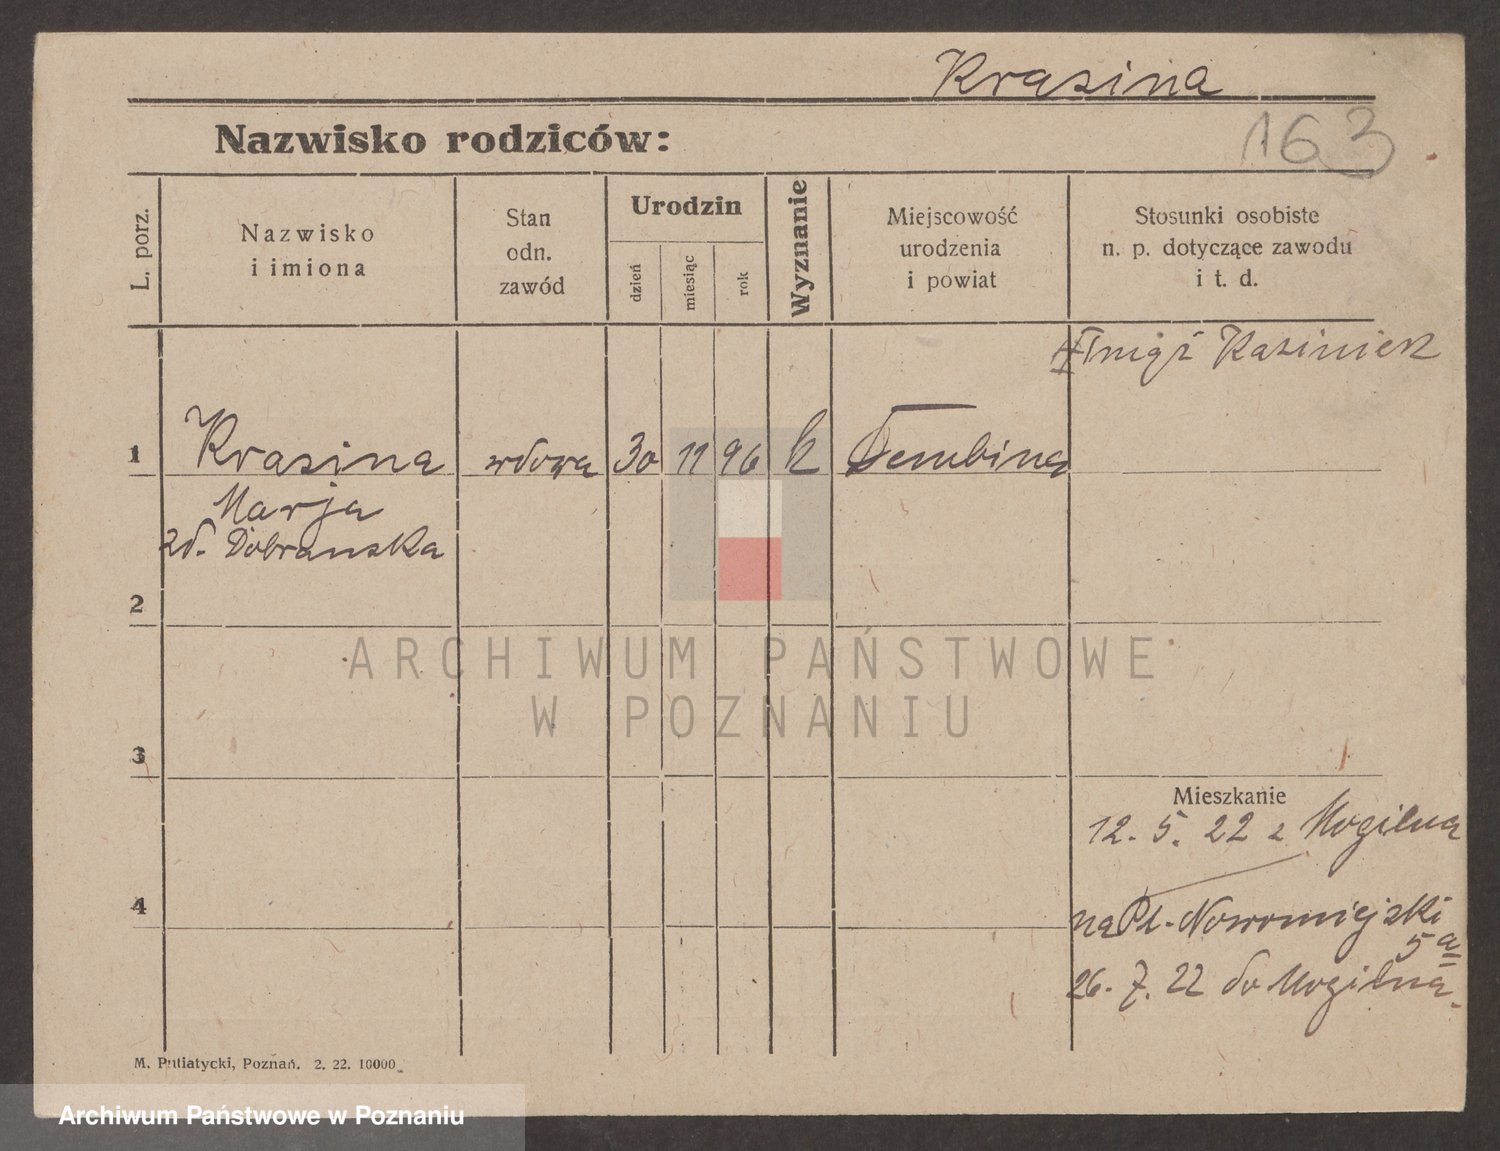 Krasina
Nazwisko rodziców:
163
L. porz.
Nazwisko
i imiona
Stan
odn.
zawód
Urodzin
dzień
miesiąc
rok
Wyznanie
Miejscowość
urodzenia
i powiat
Stosunki osobiste
n. p. dotyczące zawodu
i t. d.
Kazimierz
1
Krasina
wdowa
30
11
96
k
Marja
zd. Dobranska
2
ARCHIWUM PAŃSTWOWE
W POZNANIU
3
Mieszkanie
12. 5. 22 z Mogilna
4
na Pl. Nowomiejski
5a
26. 7. 22 do Mogilna.
M. Putiatycki, Poznań. 2. 22. 10000
Archiwum Państwowe w Poznaniu